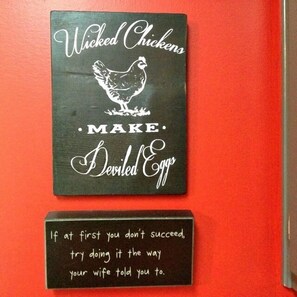 Wicked Chickens
• MAKE •
Deviled Eggs
If at first you don't succeed,
try doing it the way
your wife told you to.